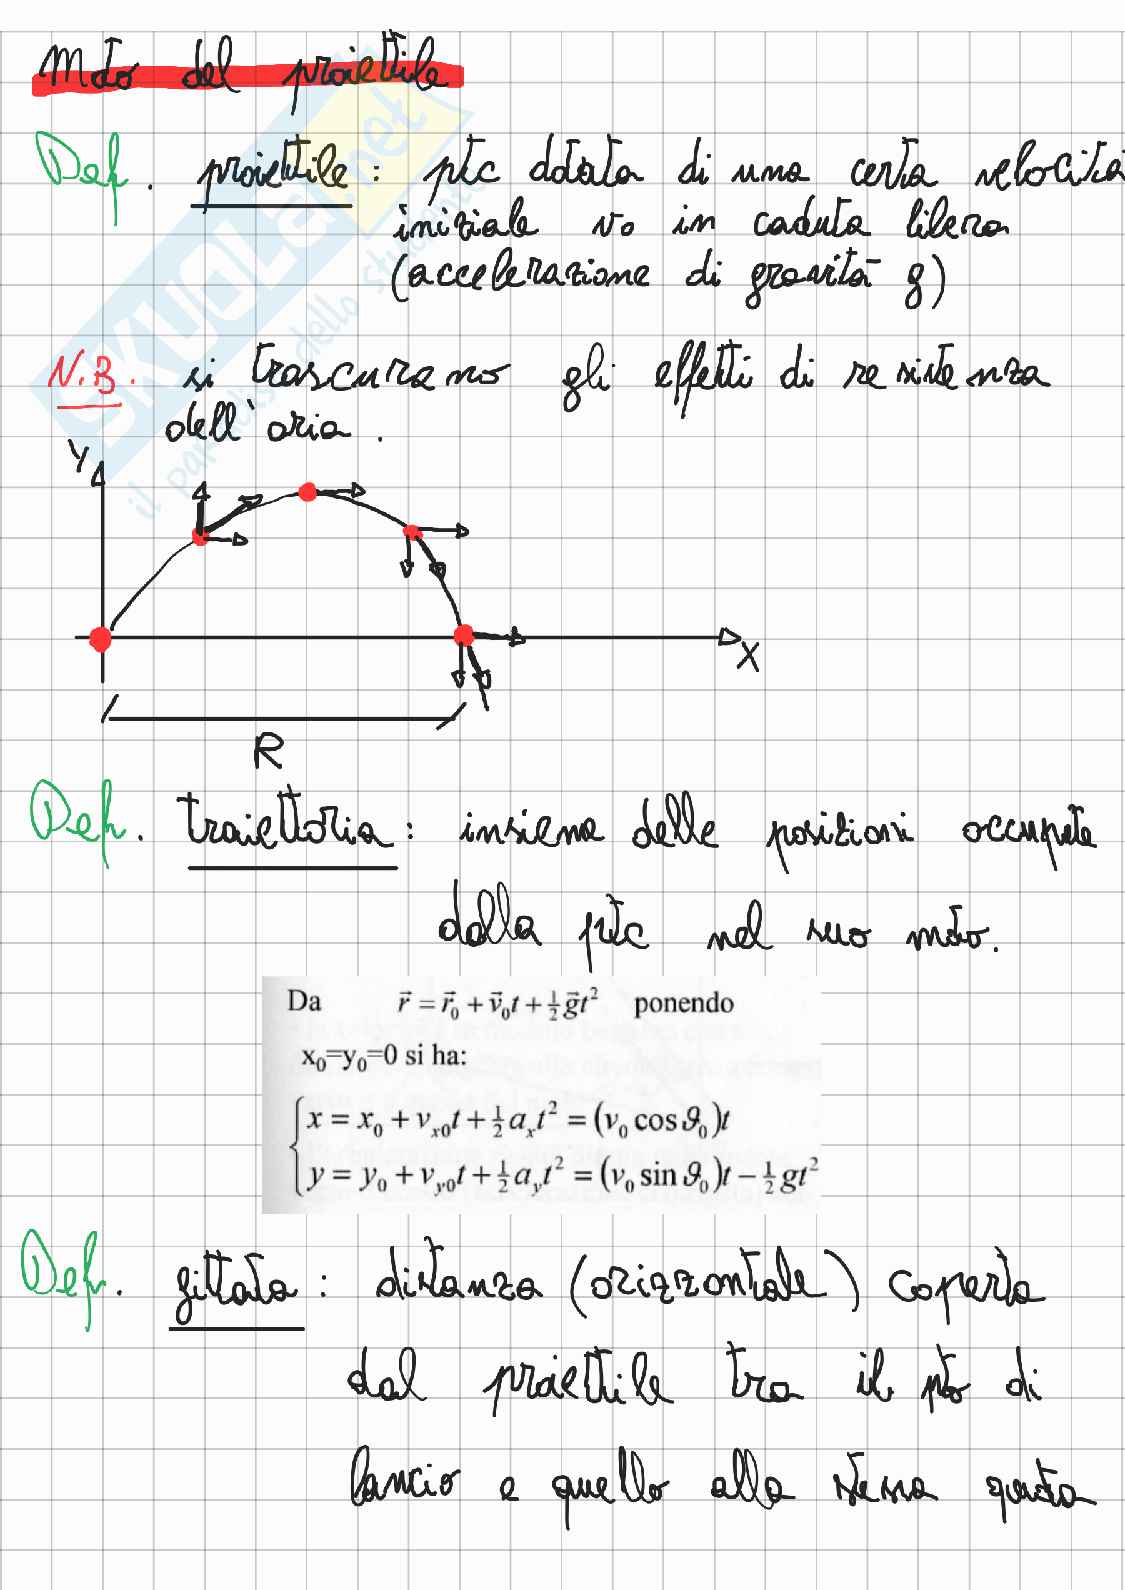 Moto del proiettile
Def. proiettile: ptc dotata di una certa velocità
iniziale v0 in caduta libera
(accelerazione di gravità g)
N.B. si trascurano gli effetti di resistenza
dell'aria.
Y
X
R
Def. traiettoria: insieme delle posizioni occupate
dalla ptc nel suo moto.
Da r⃗ = r⃗₀ + v⃗₀t + ½g⃗t² ponendo
x₀=y₀=0 si ha:
x = x₀ + vₓ₀t + ½aₓt² = (v₀ cos ϑ₀)t
y = y₀ + v_y0 t + ½a_y t² = (v₀ sin ϑ₀)t − ½gt²
Def. gittata: distanza (orizzontale) coperta
dal proiettile tra il pto di
lancio e quello alla stessa quota
SKUOLA.net